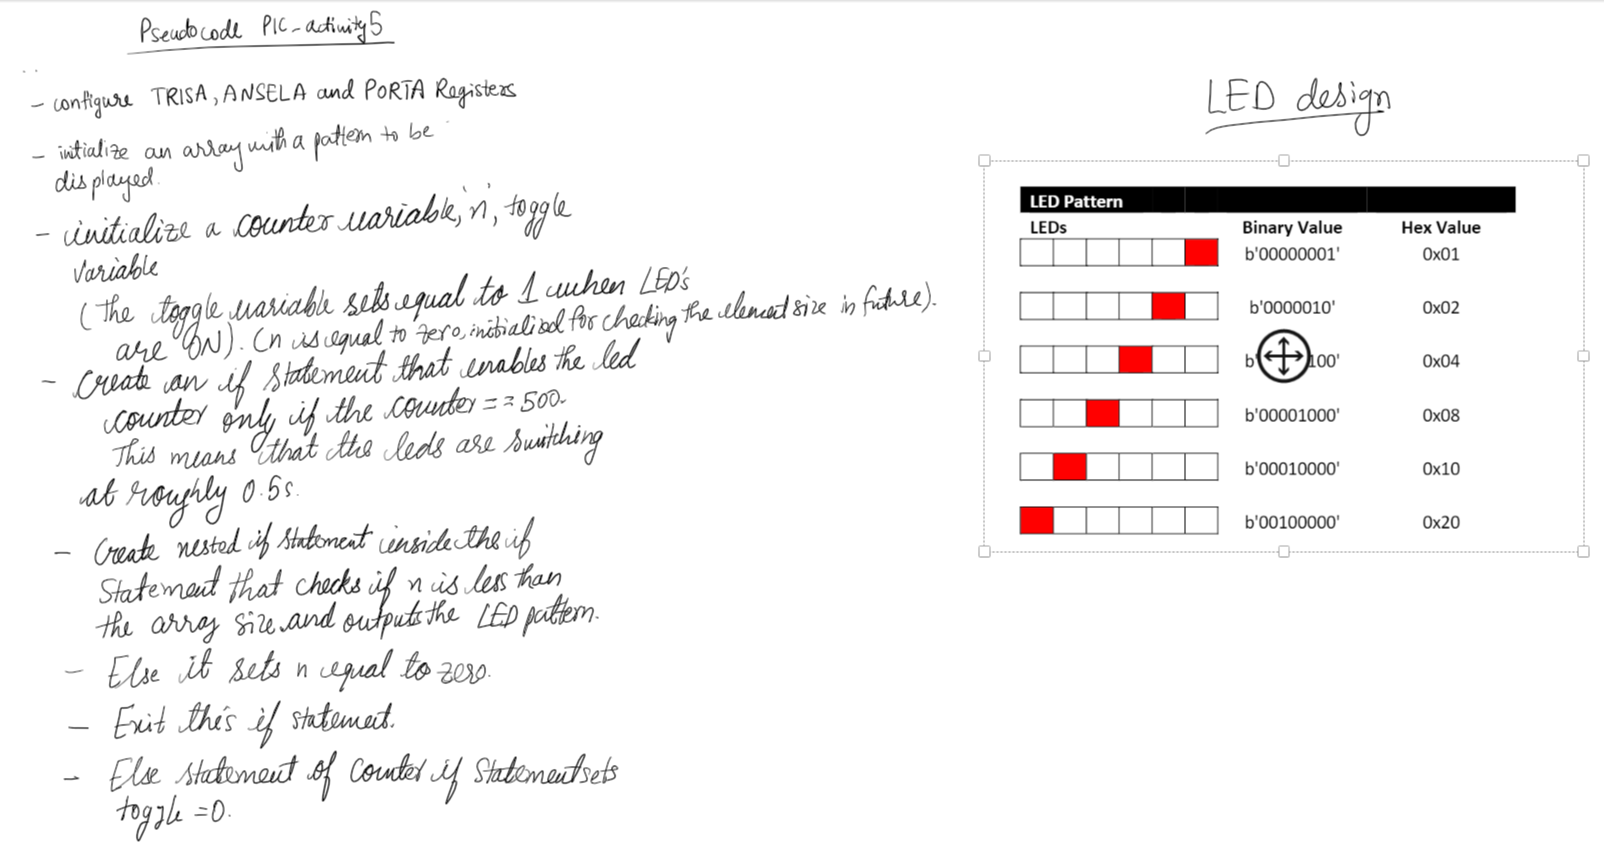 Pseudocode PIC-activity5
- configure TRISA, ANSELA and PORTA Registers
- initialize an array with a pattern to be
displayed.
- initialize a counter variable, 'n', toggle
Variable
(the toggle variable sets equal to 1 when LED's
are ON). (n is equal to zero, initialized for checking the element size in future).
- Create an if statement that enables the led
counter only if the counter == 500.
This means that the leds are switching
at roughly 0.5s.
- Create nested if statement inside the if
Statement that checks if n is less than
the array size and outputs the LED pattern.
- Else it sets n equal to zero.
- Exit this if statement.
- Else statement of Counter if Statement sets
toggle = 0.
LED design
LED Pattern
LEDs Binary Value Hex Value
b'00000001' 0x01
b'0000010' 0x02
b' 100' 0x04
b'00001000' 0x08
b'00010000' 0x10
b'00100000' 0x20